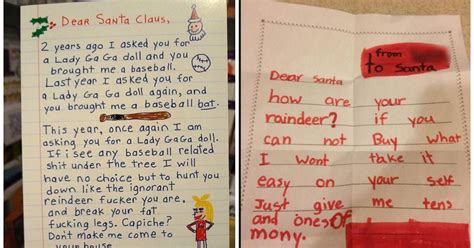 Dear Santa Claus,
2 years ago I asked you for
a Lady Ga Ga doll and you
brought me a baseball.
Last year I asked you for
a Lady Ga Ga doll again, and
you brought me a baseball bat.
This year, once again I am
asking you for a Lady Ga Ga doll.
If i see any baseball related
shit under the tree I will
have no choice but to hunt you
down like the ignorant
reindeer fucker you are.
and break your fat
fucking legs. Capiche?
Don't make me come to
your house
from
to Santa
Dear Santa
how are your
raindeer? if you
can not Buy what
I Wont take it
easy on your self
Just give me tens
and ones OF
mony.